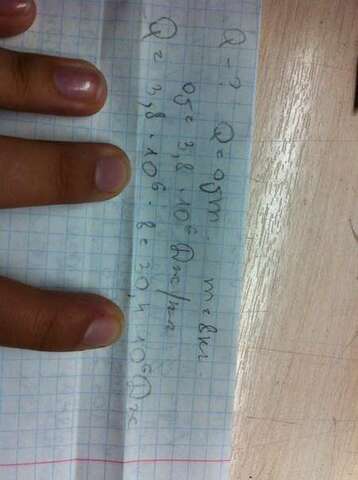 Q - ?
Q = qm m = 8 кг
q = 3,8 · 10⁶ Дж/кг
Q = 3,8 · 10⁶ · 8 = 30,4 · 10⁶ Дж